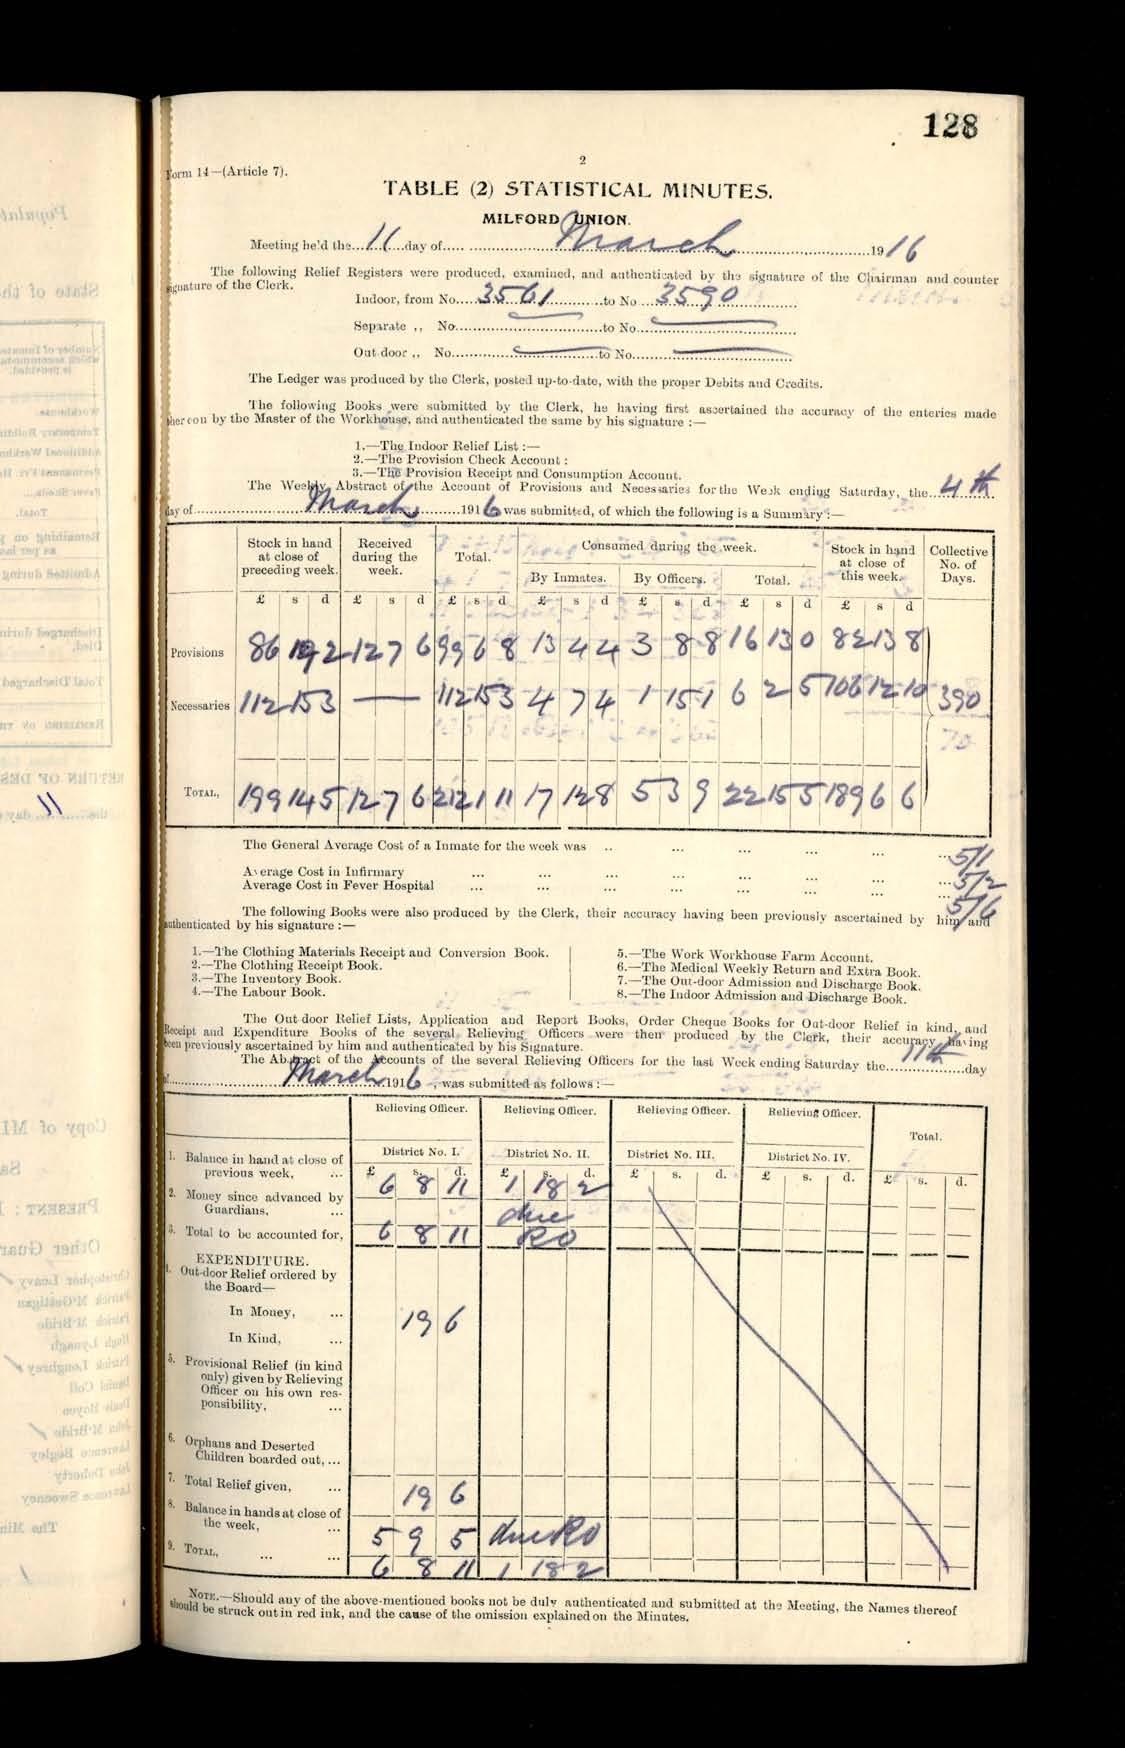 128
2
Form 14—(Article 7).
TABLE (2) STATISTICAL MINUTES.
MILFORD UNION.
Meeting held the...11...day of..... March 1916
The following Relief Registers were produced, examined, and authenticated by the signature of the Chairman and counter
signature of the Clerk.
Indoor, from No. 3561 to No. 3590
Separate ,, No. to No.
Out-door ,, No. to No.
The Ledger was produced by the Clerk, posted up-to-date, with the proper Debits and Credits.
The following Books were submitted by the Clerk, he having first ascertained the accuracy of the enteries made
thereon by the Master of the Workhouse, and authenticated the same by his signature :—
1.—The Indoor Relief List :—
2.—The Provision Check Account :
3.—The Provision Receipt and Consumption Account.
The Weekly Abstract of the Account of Provisions and Necessaries for the Week ending Saturday, the 4th
day of March 1916 was submitted, of which the following is a Summary :—
Stock in hand at close of preceding week. Received during the week. Total. Consumed during the week. Stock in hand at close of this week. Collective No. of Days.
By Inmates. By Officers. Total.
£ s d £ s d £ s d £ s d £ s d £ s d £ s d
Provisions 86 19 2 12 7 6 99 6 8 13 4 4 3 8 8 16 13 0 82 13 8
Necessaries 112 15 3 — 112 15 3 4 7 4 1 15 1 6 2 5 106 12 10 390
70
TOTAL, 199 14 5 12 7 6 212 1 11 17 12 8 5 3 9 22 15 5 189 6 6
The General Average Cost of a Inmate for the week was .. ... ... ... ... ... 5/1
Average Cost in Infirmary ... ... ... ... ... ... ... 5/2
Average Cost in Fever Hospital ... ... ... ... ... ... ... 5/6
The following Books were also produced by the Clerk, their accuracy having been previously ascertained by him and
authenticated by his signature :—
1.—The Clothing Materials Receipt and Conversion Book.
2.—The Clothing Receipt Book.
3.—The Inventory Book.
4.—The Labour Book.
5.—The Work Workhouse Farm Account.
6.—The Medical Weekly Return and Extra Book.
7.—The Out-door Admission and Discharge Book.
8.—The Indoor Admission and Discharge Book.
The Out-door Relief Lists, Application and Report Books, Order Cheque Books for Out-door Relief in kind, and
Receipt and Expenditure Books of the several Relieving Officers were then produced by the Clerk, their accuracy having
been previously ascertained by him and authenticated by his Signature.
The Abstract of the Accounts of the several Relieving Officers for the last Week ending Saturday the 11th day
of March 1916, was submitted as follows :—
Relieving Officer. Relieving Officer. Relieving Officer. Relieving Officer. Total.
District No. I. District No. II. District No. III. District No. IV.
£ s. d. £ s. d. £ s. d. £ s. d. £ s. d.
1. Balance in hand at close of
previous week, ... 6 8 11 1 18 2
2. Money since advanced by
Guardians, ... due
3. Total to be accounted for, 6 8 11 RO
EXPENDITURE.
4. Out-door Relief ordered by
the Board—
In Money, ... 19 6
In Kind, ...
5. Provisional Relief (in kind
only) given by Relieving
Officer on his own res-
ponsibility, ...
6. Orphans and Deserted
Children boarded out, ...
7. Total Relief given, ... 19 6
8. Balance in hands at close of
the week, ... 5 9 5 due RO
9. TOTAL, ... ... 6 8 11 1 18 2
NOTE.—Should any of the above-mentioned books not be duly authenticated and submitted at the Meeting, the Names thereof
should be struck out in red ink, and the cause of the omission explained on the Minutes.